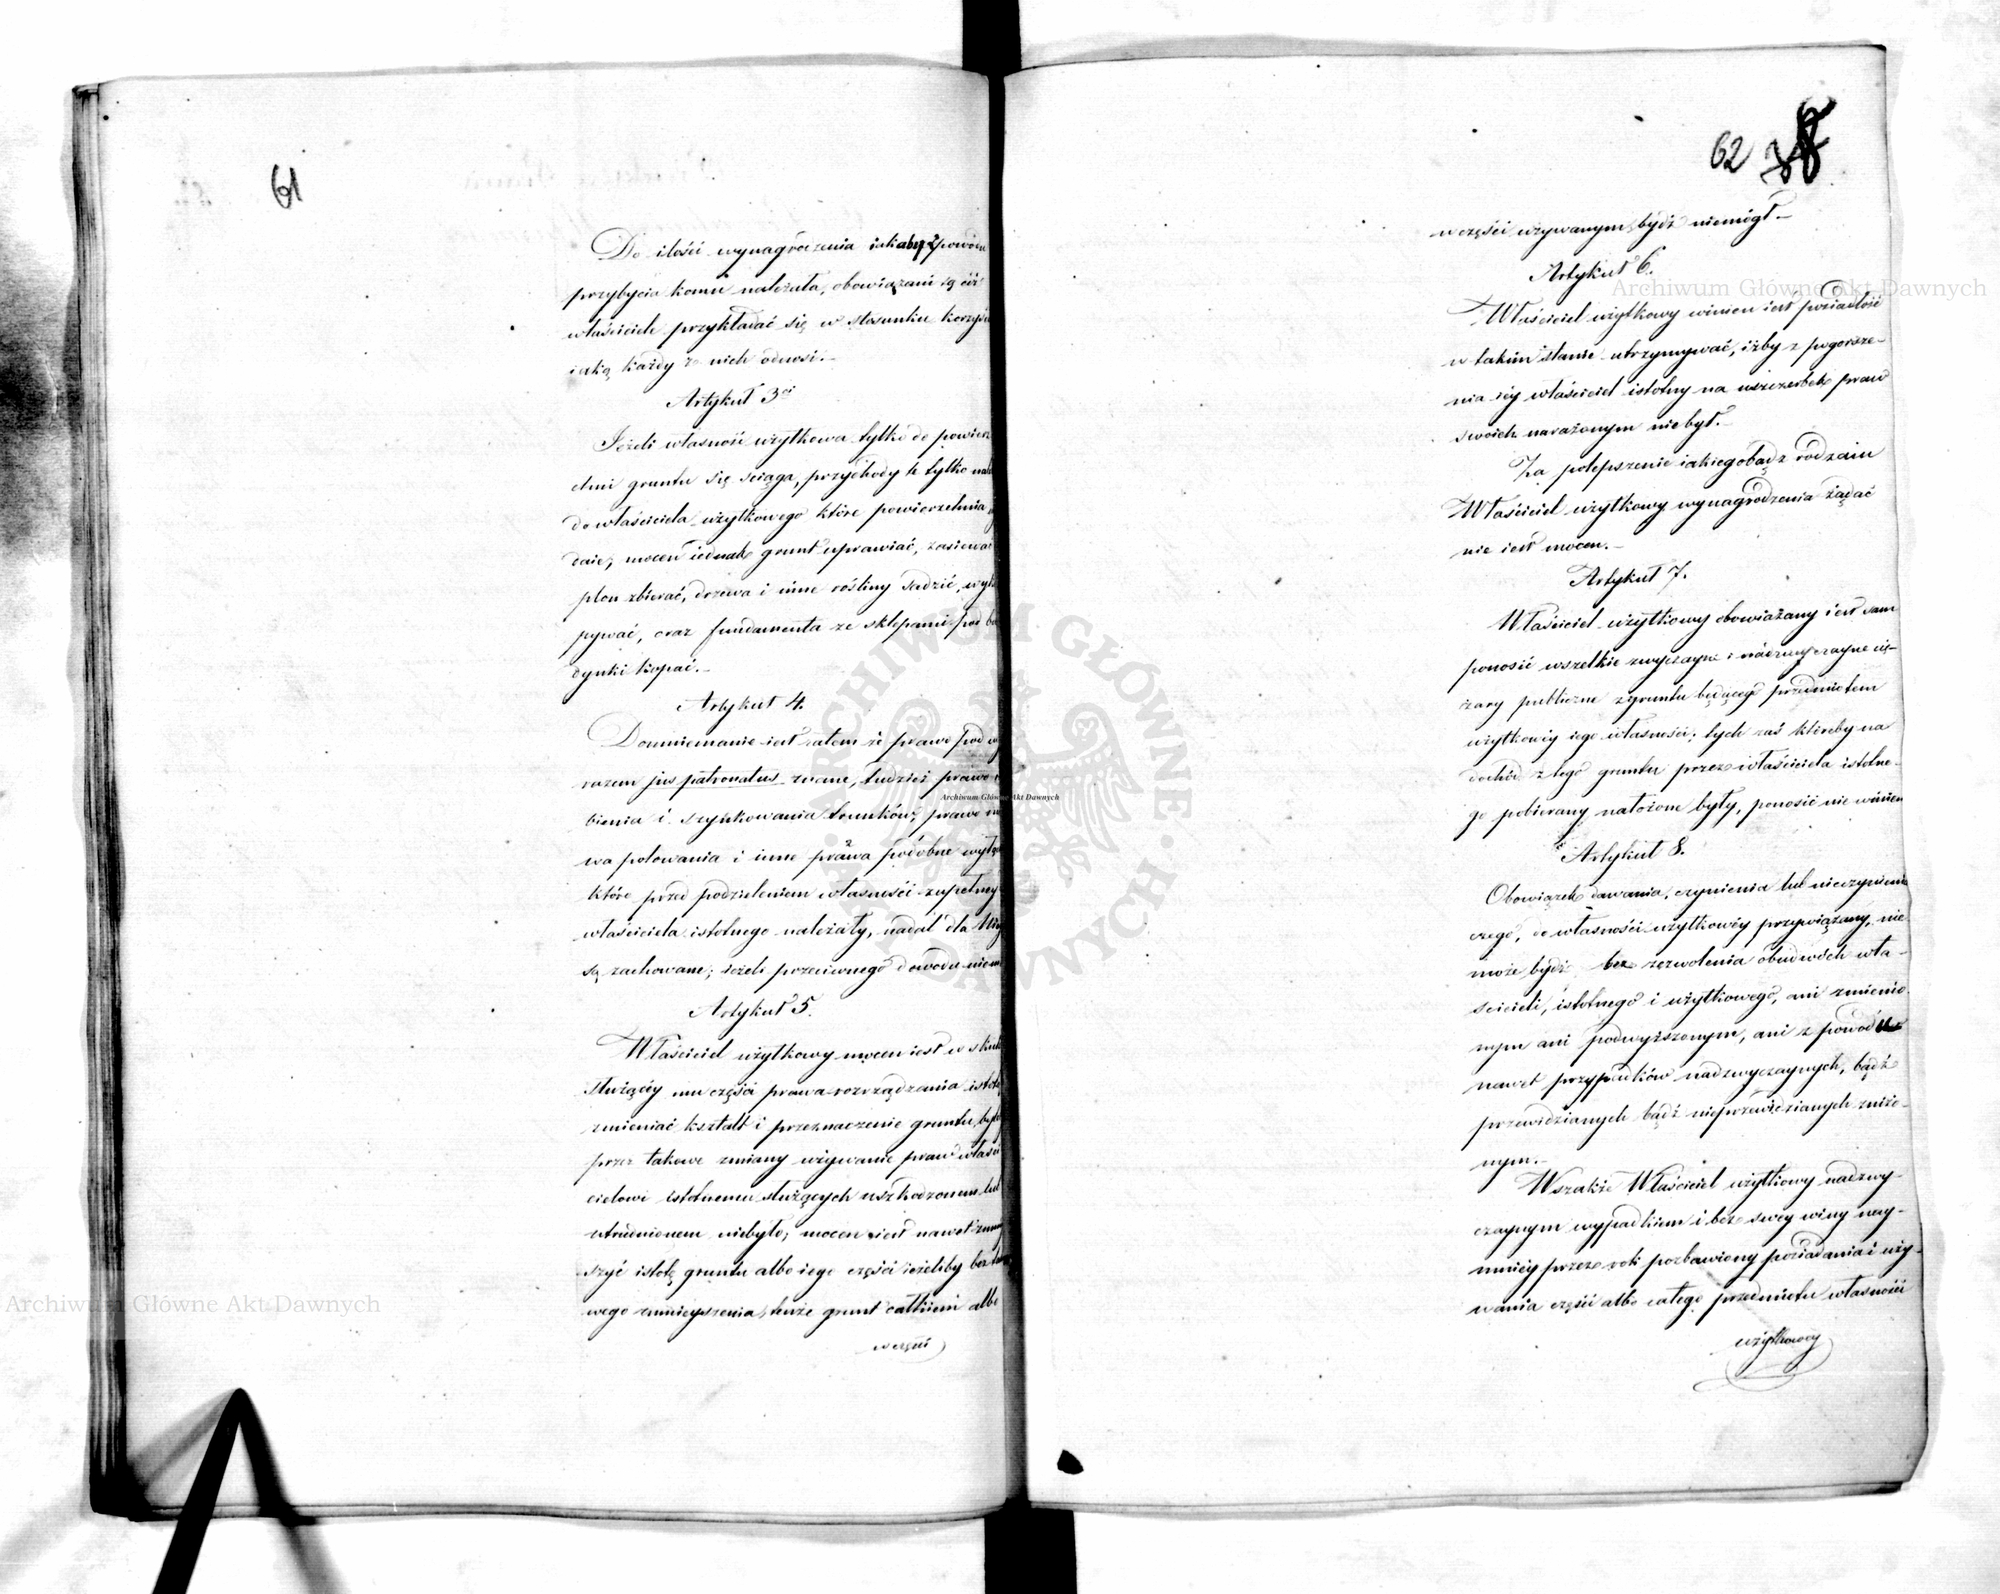 61
Do ilości wynagrodzenia iakaby z powodu
przybycia komu należała, obowiązani są ciż
właściciele przykładać się w stosunku korzyści
iaką każdy z nich odnosi.
Artykuł 3ci
Jeżeli własność użytkowa tylko do powierz
chni gruntu się ściąga, przychody te tylko
do właściciela użytkowego które powierzchnia
daie; mocen iednak grunt uprawiać, zasiewać
plon zbierać, drzewa i inne rośliny sadzić, wyko
pywać, oraz fundamenta ze sklepami pod bu
dynki kopać.
Artykuł 4.
Domniemanie iest zatem że prawo pod wy
razem jus patronatus znane, tudzież prawo
bienia i szynkowania trunków, prawo
wa polowania i inne prawa podobne
które przed podzieleniem własności zupełney
właściciela istotnego należały, nadal dla
są zachowane; ieżeli przeciwnego dowodu niema
Artykuł 5.
Właściciel użytkowy mocen iest w skutku
służącéy mu części prawa rozrządzania istotą
zmieniać kształt i przeznaczenie gruntu, byle
przez takowe zmiany używanie praw właści
cielowi istotnemu służących uszkodzonem lub
utrudnionem niebyło; mocen iest nawet zmniey
szyć istotę gruntu albo iego części ieżeliby bez
wego zmnieyszenia, tenże grunt całkiem albo
w części
62 38
w części używanym bydź niemógł.
Artykuł 6.
Właściciel użytkowy winien iest posiadłość
w takim stanie utrzymywać, iżby z pogorsze-
nia iéy właściciel istotny na uszczerbek praw
swoich narażonym nie był.
Za polepszenie iakiegobądź rodzaiu
Właściciel użytkowy wynagrodzenia żądać
nie iest mocen.
Artykuł 7.
Właściciel użytkowy obowiązany iest sam
ponosić wszelkie zwyczayne i nadzwyczayne cię-
żary publiczne z gruntu będącego przedmiotem
użytkowéy iego własności; tych zaś któreby na
dochód z tego gruntu przez właściciela istotne-
go pobierany nałożone były, ponosić nie winien
Artykuł 8.
Obowiązek dawania, czynienia lub nieczynienia
czego, do własności użytkowéy przywiązany, nie
może bydź bez zezwolenia obudwóch wła-
ścicieli, istotnego i użytkowego, ani zmienio-
nym ani podwyższonym, ani z powodu
nawet przypadków nadzwyczaynych, bądź
przewidzianych bądź nieprzewidzianych zniżo-
nym.
Wszakże Właściciel użytkowy nadzwy-
czaynym wypadkiem i bez swéy winy nay-
mniéy przez rok pozbawiony posiadania i uży-
wania części albo całego przedmiotu własności
użytkowéy
Archiwum Główne Akt Dawnych
Archiwum Główne Akt Dawnych
Archiwum Główne Akt Dawnych
ARCHIWUM GŁÓWNE AKT DAWNYCH